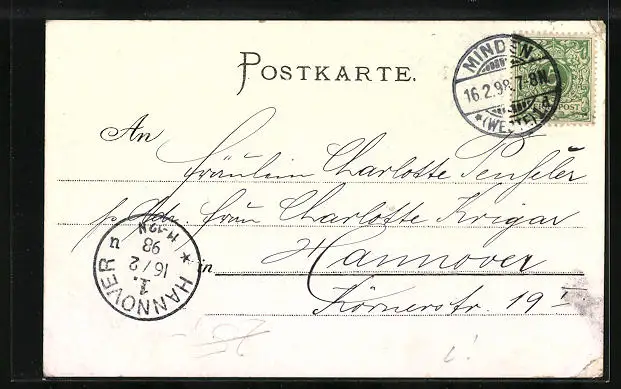 POSTKARTE.
MINDEN
16.2.98.7-8N.
*(WESTF)*
An
Fräulein Charlotte
p. Adr. Frau Charlotte Krigar
in Hannover
Körnerstr. 19
HANNOVER n
1.
16/2
98